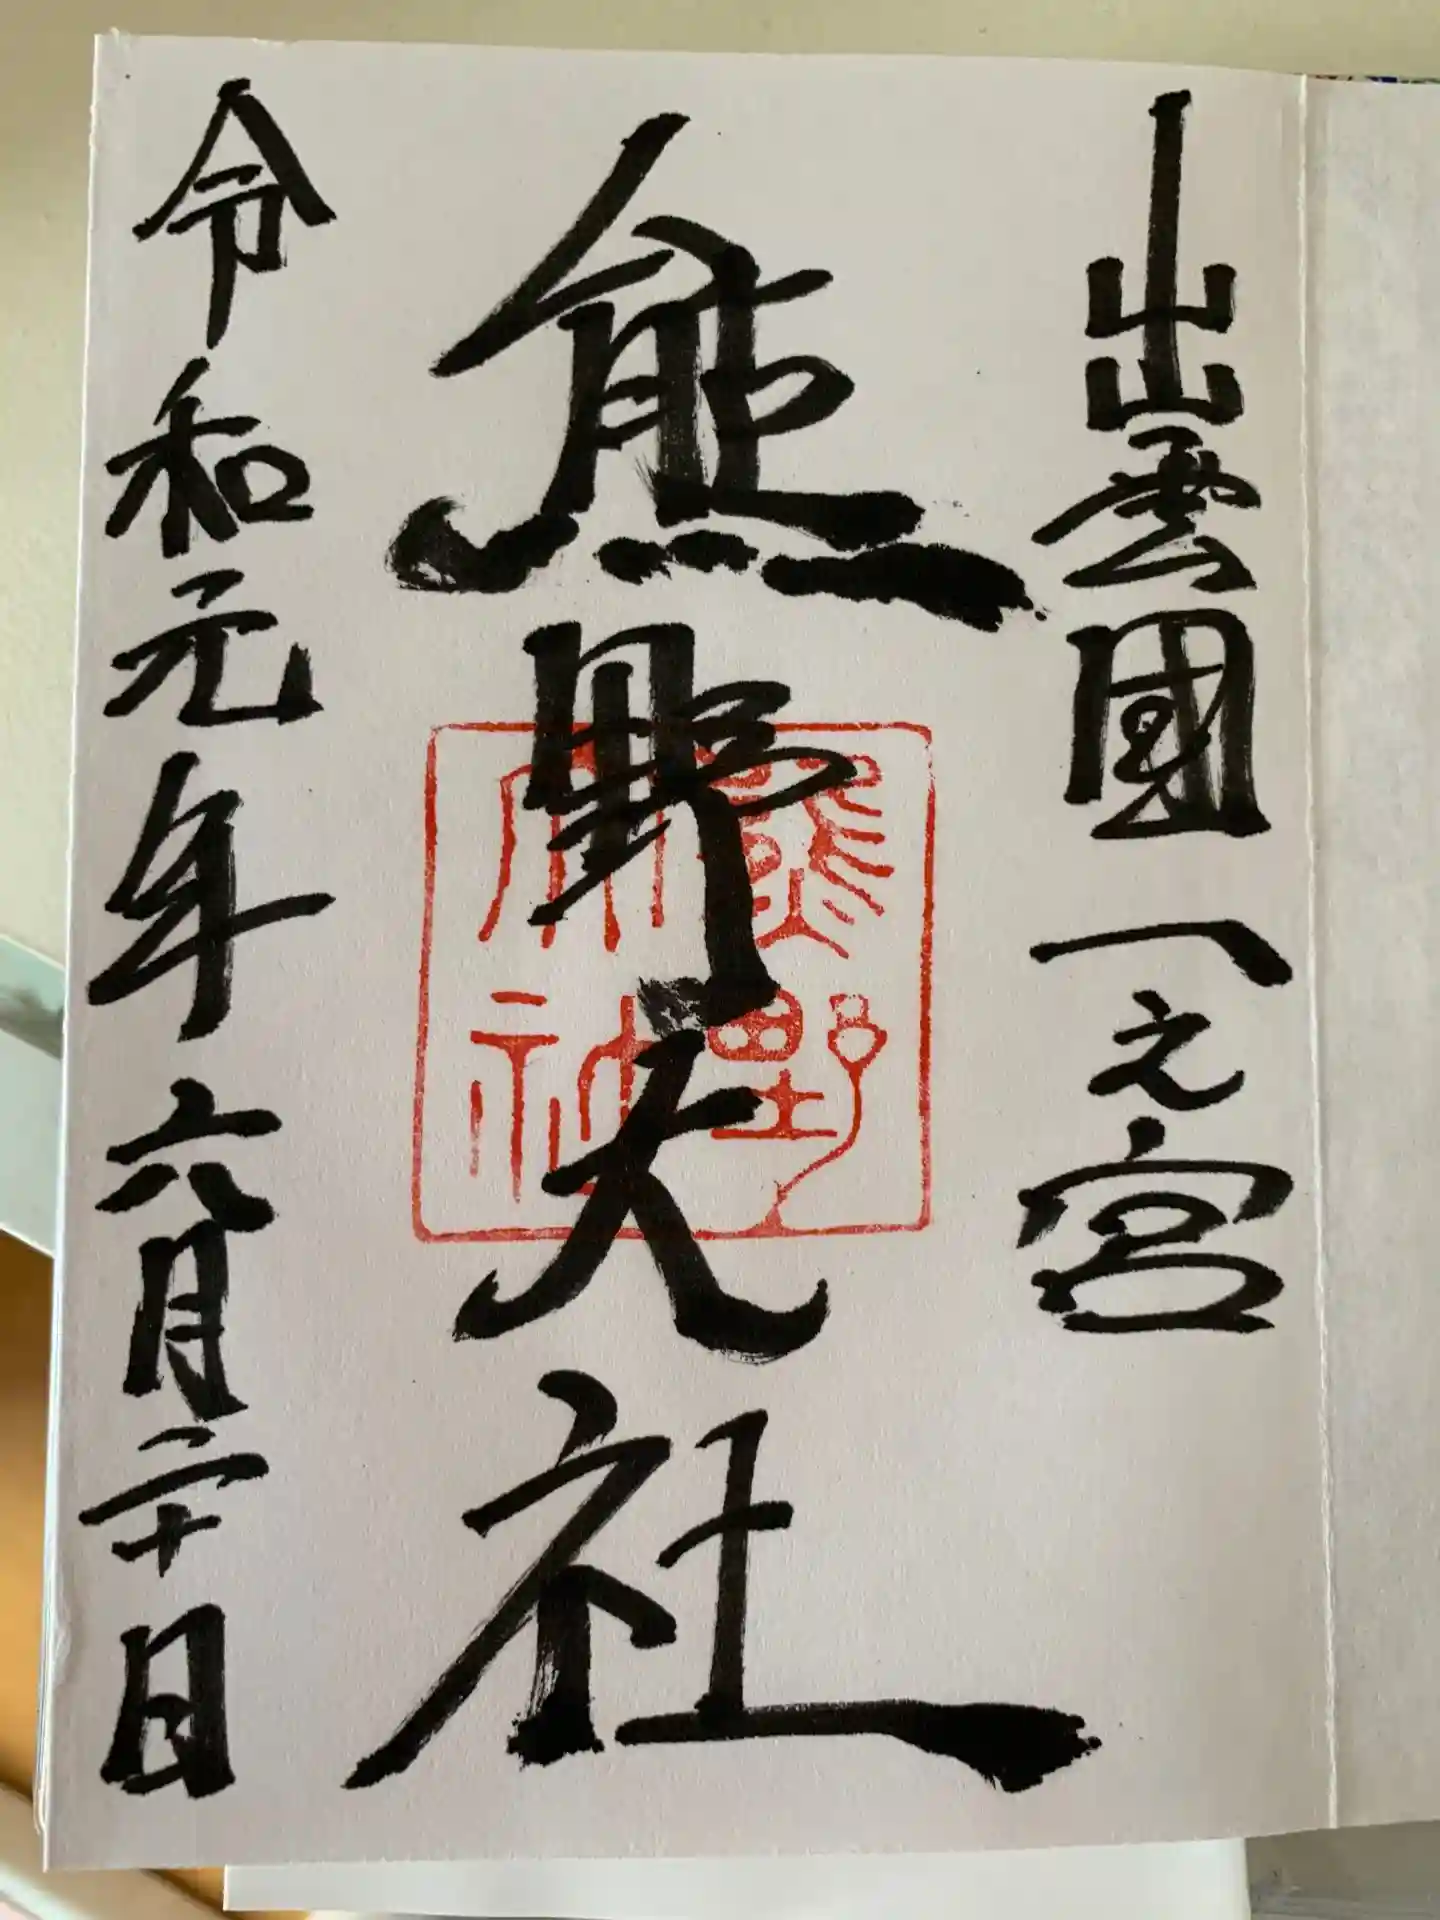 出雲國一之宮
熊野大社
熊野
大社
令和元年六月二十日